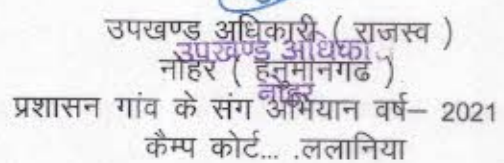 उपखण्ड अधिकारी ( राजस्व )
उपखण्ड अधिका
नोहर ( हनुमानगढ )
नोहर
प्रशासन गांव के संग अभियान वर्ष– 2021
कैम्प कोर्ट... .ललानिया